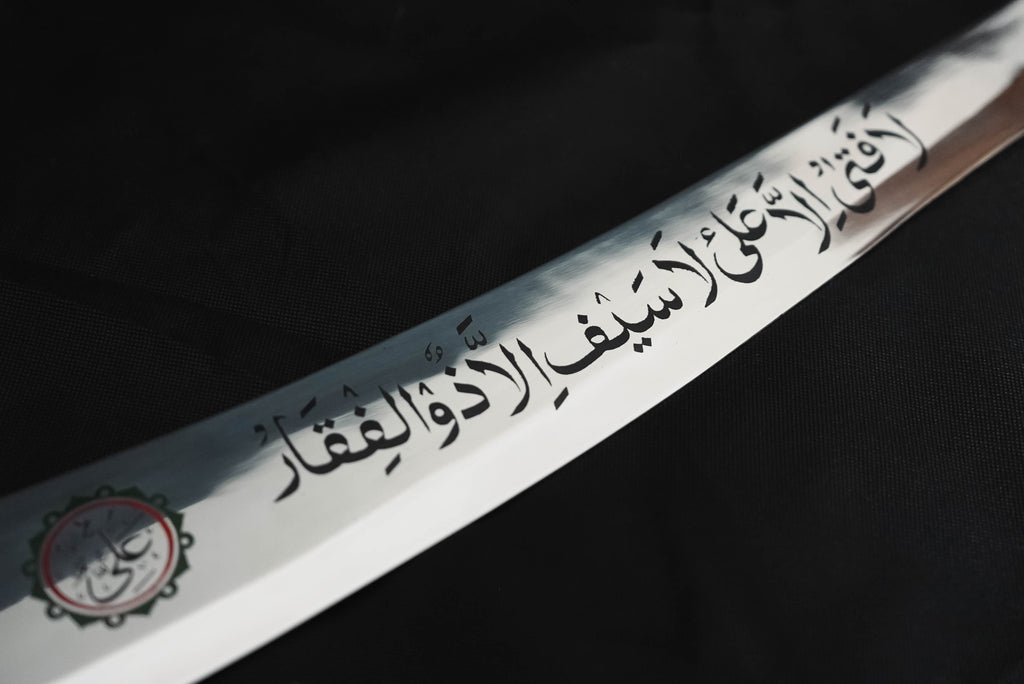 لَا فَتَىٰ إِلَّا عَلِيْ لَا سَيْفِ إِلَّا ذُوْالْفِقَارْ
علي